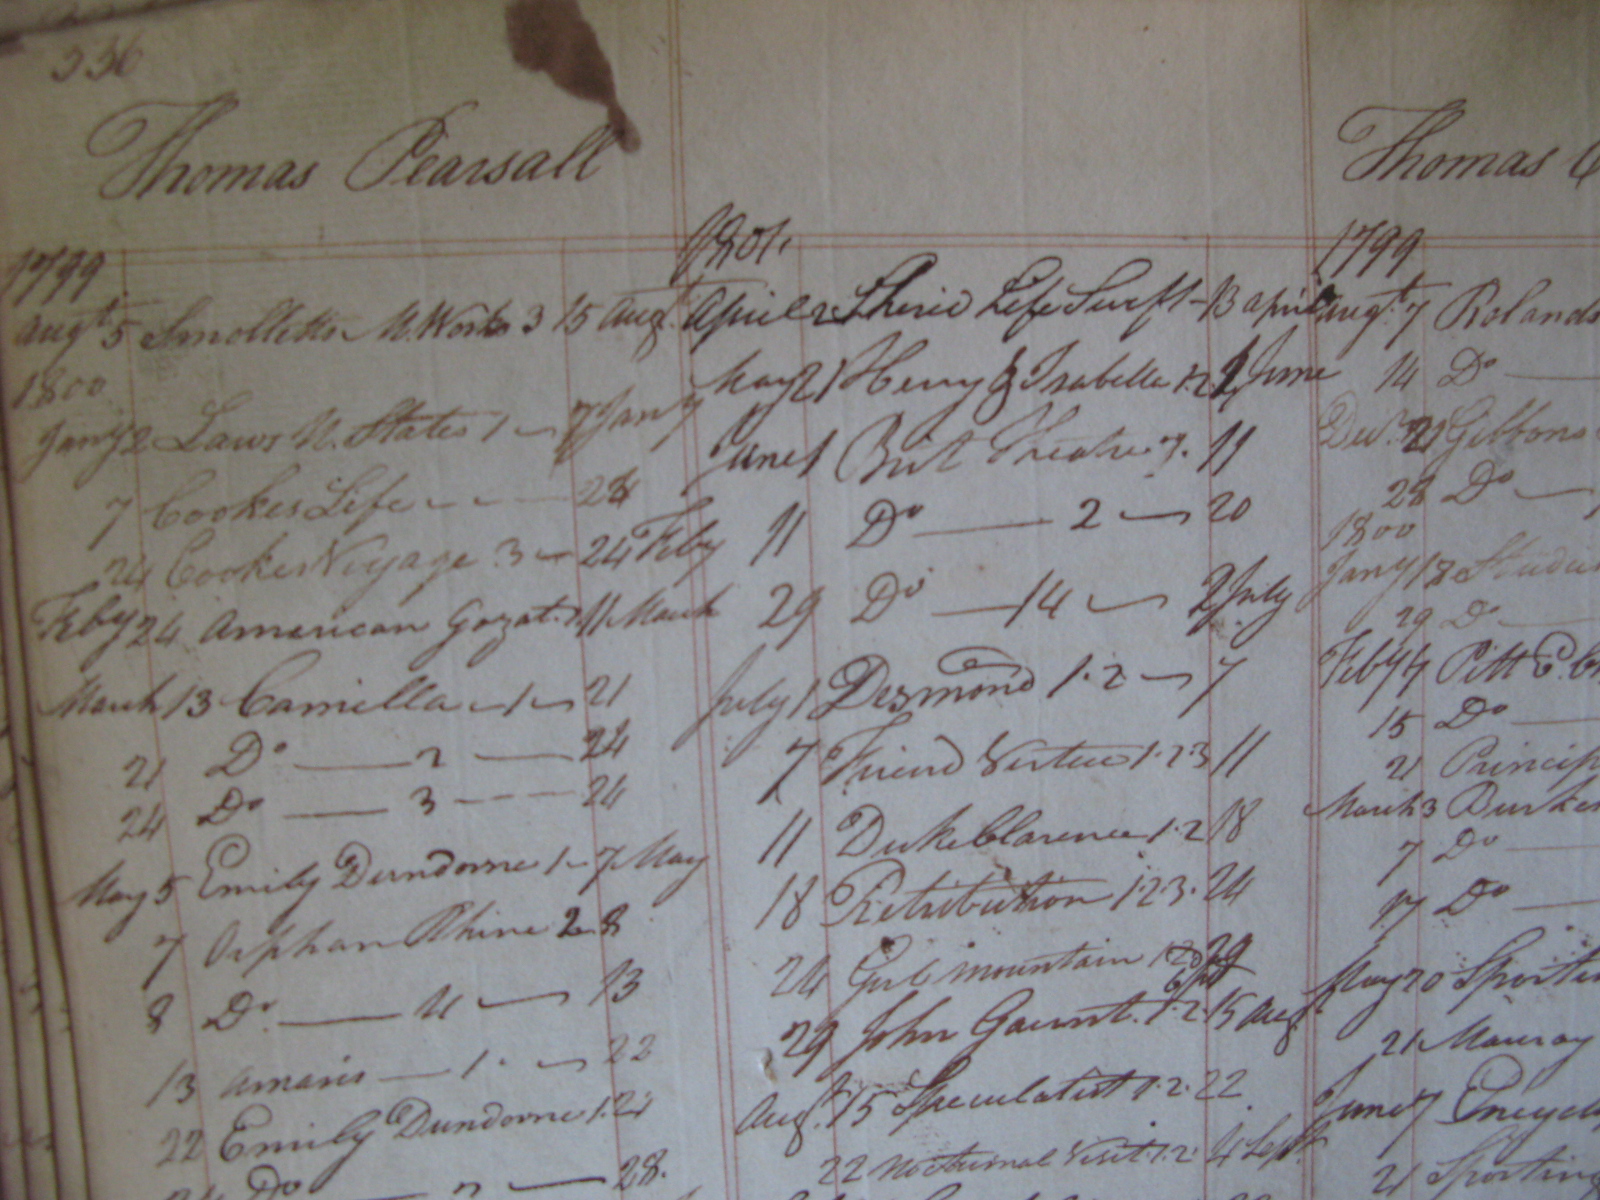 336
Thomas Pearsall
1799
Augt 5 Smolletts M. Works 3 15 Aug.
1800
Jany 2 Laws U. States 1 — 7 Jany
7 Cookes Life — — 24
24 Cookes Voyage 3 — 24 Feby
Feby 24 American Gazat. 11 March
March 13 Camilla — 1 — 21
21 Do — 2 — 24
24 Do — 3 — 24
May 5 Emily Dundorne 1 — 7 May
7 Orphan Rhine 2 — 8
8 Do. — 4 — 13
13 Amaris — 1 . — 22
22 Emily Dundorne 1.24
Do — 28.
1801.
April 2 Sheric Life Swift — 13 April
May 21 Henry & Isabella 1.2 June
June 1 Brit Theatre 7. 11
11 Do — 2 — 20
29 Do — 14 — 2 July
July 1 Desmond 1.2 — 7
7 Friend Vertue 1.2.3 11
11 Duke Clarence 1.2 18
18 Retribution 1.2.3. 24
24 Gub mountain 29
29 John Gaunt. 1.2. 15 Aug.
Aug. 15 Speculatist 1.2. 22
22 Nocturnal Visit 1.2. 4 Sept.
Thomas
1799
Augt. 7 Rolands
14 Do —
21 Gibbons
28 Do —
1800
Jany 18
29 Do —
Feby 7 Pitt
15 Do —
21 Princip
March 3 Burkes
7 Do —
17 Do —
May 20 Sportin
21 Mauray
June 7 Encyclo
21 Sporting